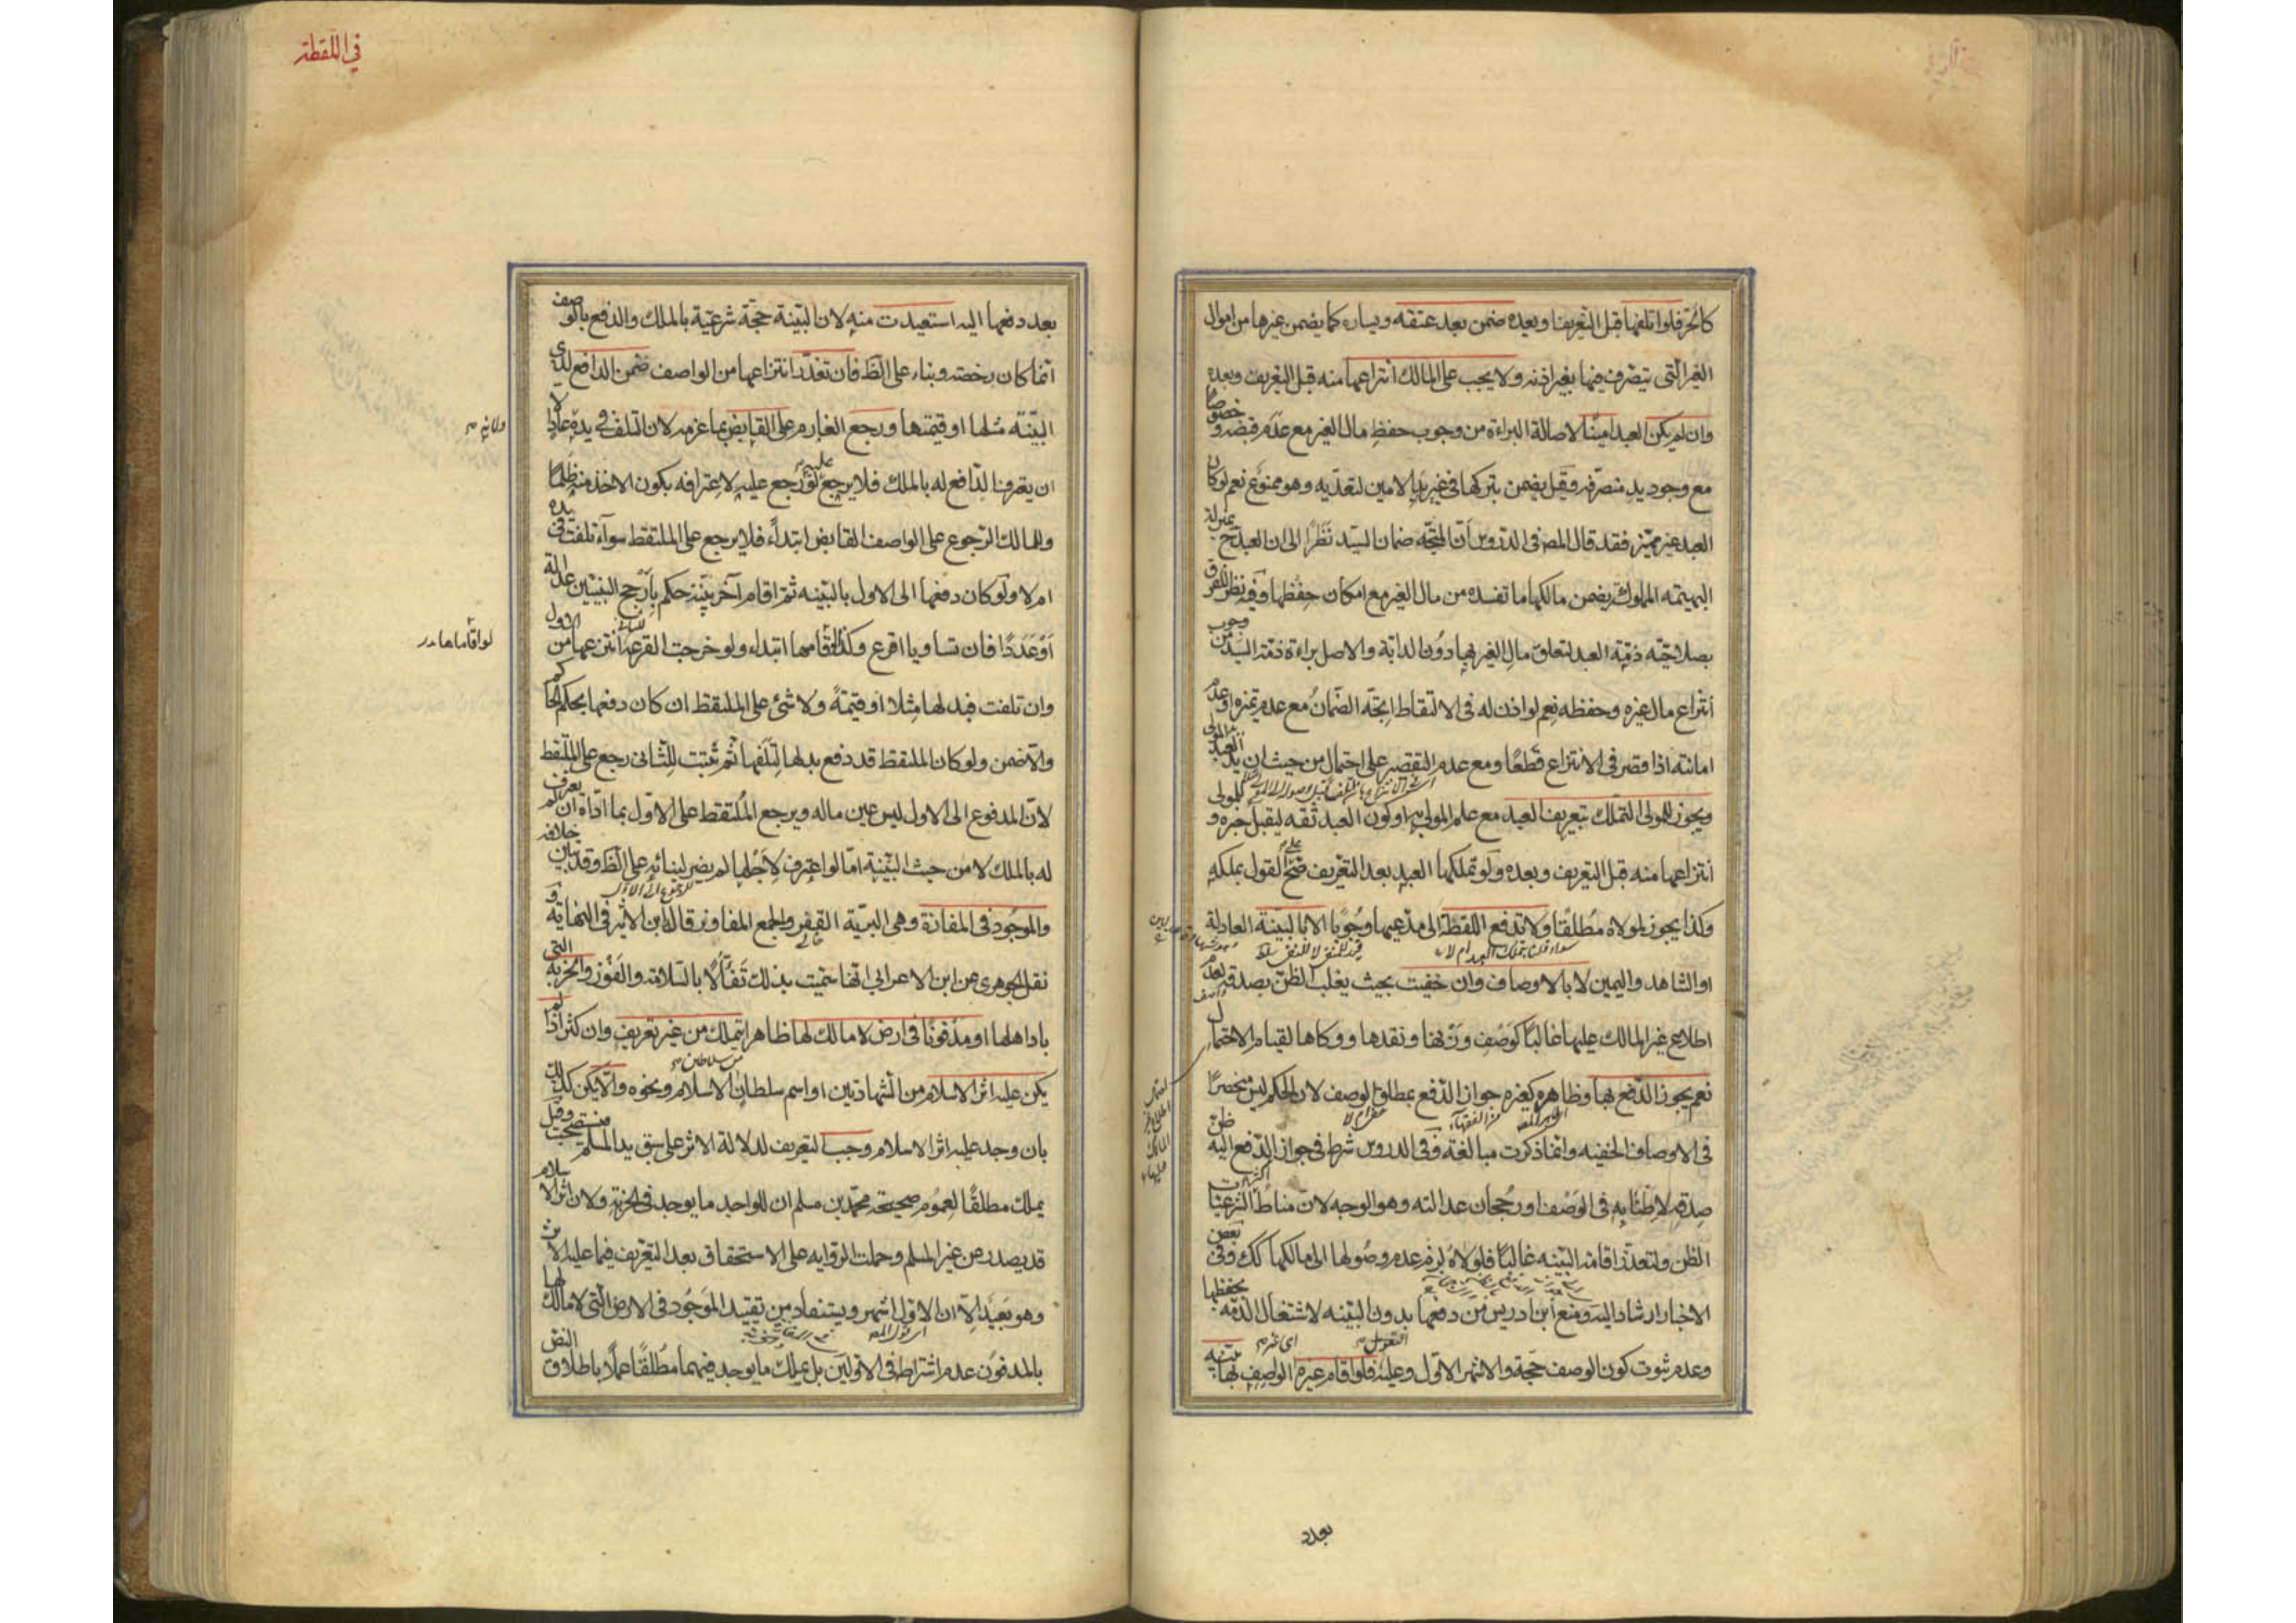 كالحر فلو اتلفها قبل التعريف او بعده ضمن بعد عتقه ويساره كما يضمن غيرها من اموال
الغير التي يتصرف فيها بغير اذنه ولا يجب على المالك انتزاعها منه قبل التعريف وبعده
وان لم يكن العبد امينا لاصالة البراءة من وجوب حفظ مال الغير مع عدم قبضه و خصوصا
مع وجود يد متصرفه وقيل يضمن بتركها في غير يد الامين لتعديه وهو ممنوع نعم لو كان
العبد غير مميز فقد قال المص في الدروس ان المتجه ضمان السيد نظرا الى ان العبد ح بمنزلة
البهيمة المملوكة يضمن مالكها ما تفسده من مال الغير مع امكان حفظها وفيه نظر للفرق
بصلاحية ذمة العبد لتعلق مال الغير بها دون الدابة والاصل براءة ذمة السيد من وجوب
انتزاع مال غيره وحفظه نعم لو اذن له في الالتقاط اتجه الضمان مع عدم تميزه او عدم
امانته اذا قصر في الانتزاع قطعا ومع عدم التقصير على احتمال من حيث ان يد العبد يد المولى
ويجوز للمولى التملك بتعريف العبد مع علم المولى به او كون العبد ثقة ليقبل خبره و للمولى
انتزاعها منه قبل التعريف وبعده ولو تملكها العبد بعد التعريف صح على القول بملكه
وكذا يجوز لمولاه مطلقا ولا تدفع اللقطة الى مدعيها وجوبا الا بالبينة العادلة
سواء قلنا بتملك العبد ام لا
او الشاهد واليمين لا بالاوصاف وان خفيت بحيث يغلب الظن بصدقه لعدم
اطلاع غير المالك عليها غالبا كوصف وزنها ونقدها ووكاها لقيام الاحتمال
نعم يجوز الدفع بها وظاهره كغيره جواز الدفع بمطلق الوصف لان الحكم ليس منحصرا
في الاوصاف الخفية وانما ذكرت مبالغة وفي الدروس شرط في جواز الدفع اليه ظن
صدقه لاطنابه في الوصف او رجحان عدالته وهو الوجه لان مناط اكثر الشرعيات
الظن ولتعذر اقامة البينة غالبا فلولاه لزم عدم وصولها الى مالكها كك وفي بعض
الاخبار ارشاد اليه ومنع ابن ادريس من دفعها بدون البينه لاشتغال الذمة بحفظها
وعدم ثبوت كون الوصف حجة والاشهر الاول وعليه فلو اقام غيره اي غير الواصف بها بينة
بعد
في اللقطة
بعد دفعها اليه استعيدت منه لان البينة حجة شرعية بالملك والدفع بالوصف
انما كان رخصة وبناء على الظ فان تعذر انتزاعها من الواصف ضمن الدافع لذي
البينة مثلها او قيمتها ورجع الغارم على القابض بما غرمه لان التلف في يده عاديا
ان يعترف الدافع له بالملك فلا يرجع عليه لو رجع عليه لاعترافه بكون الاخذ منه ظلما
وللمالك الرجوع على الواصف القابض ابتداء فلا يرجع على الملتقط سواء تلفت في يده
ام لا ولو كان دفعها الى الاول بالبينه ثم اقام آخر بينة حكم بارجح البينتين عدالة
او عددا فان تساويا اقرع وكذا لو اقاماها ابتداء ولو خرجت القرعة انتزعها من الاول
وان تلفت فبدلها مثلا او قيمة ولا شئ على الملتقط ان كان دفعها بحكم الحاكم
والا ضمن ولو كان الملتقط قد دفع بدلها لتلفها ثم ثبتت للثاني رجع على الملتقط
لان المدفوع الى الاول ليس عين ماله ويرجع الملتقط على الاول بما اداه ان لم يعترف
له بالملك لا من حيث البينة اما لو اعترف لاجلها لم يضر لبنائه على الظ وقد تبين خلافه
والموجود في المفازة وهي البرية القفر والجمع المفاوز قاله ابن الاثير في النهاية و
نقل الجوهري عن ابن الاعرابي انها سميت بذلك تفألا بالسلامة والفوز والخربة التي
باد اهلها او مدفونا في ارض لا مالك لها ظاهرا يتملك من غير تعريف وان كثر اذا لم
يكن عليه اثر الاسلام من الشهادتين او اسم سلطان الاسلام ونحوه والا يكن كذلك
من سلاطين
بان وجد عليه اثر الاسلام وجب التعريف لدلالة الاثر على سبق يد المسلم فتستصحب وقيل
يملك مطلقا لعموم صحيحة محمد بن مسلم ان للواجد ما يوجد في الخربة ولان اثر الاسلام
قد يصدر عن غير المسلم وحملت الرواية على الاستحقاق بعد التعريف فيما عليه الاثر
وهو بعيد الا ان الاول اشهر ويستفاد من تقييد الموجود في الارض التي لا مالك لها
بالمدفون عدم اشتراطه في الاولين بل يملك ما يوجد فيهما مطلقا عملا باطلاق النص